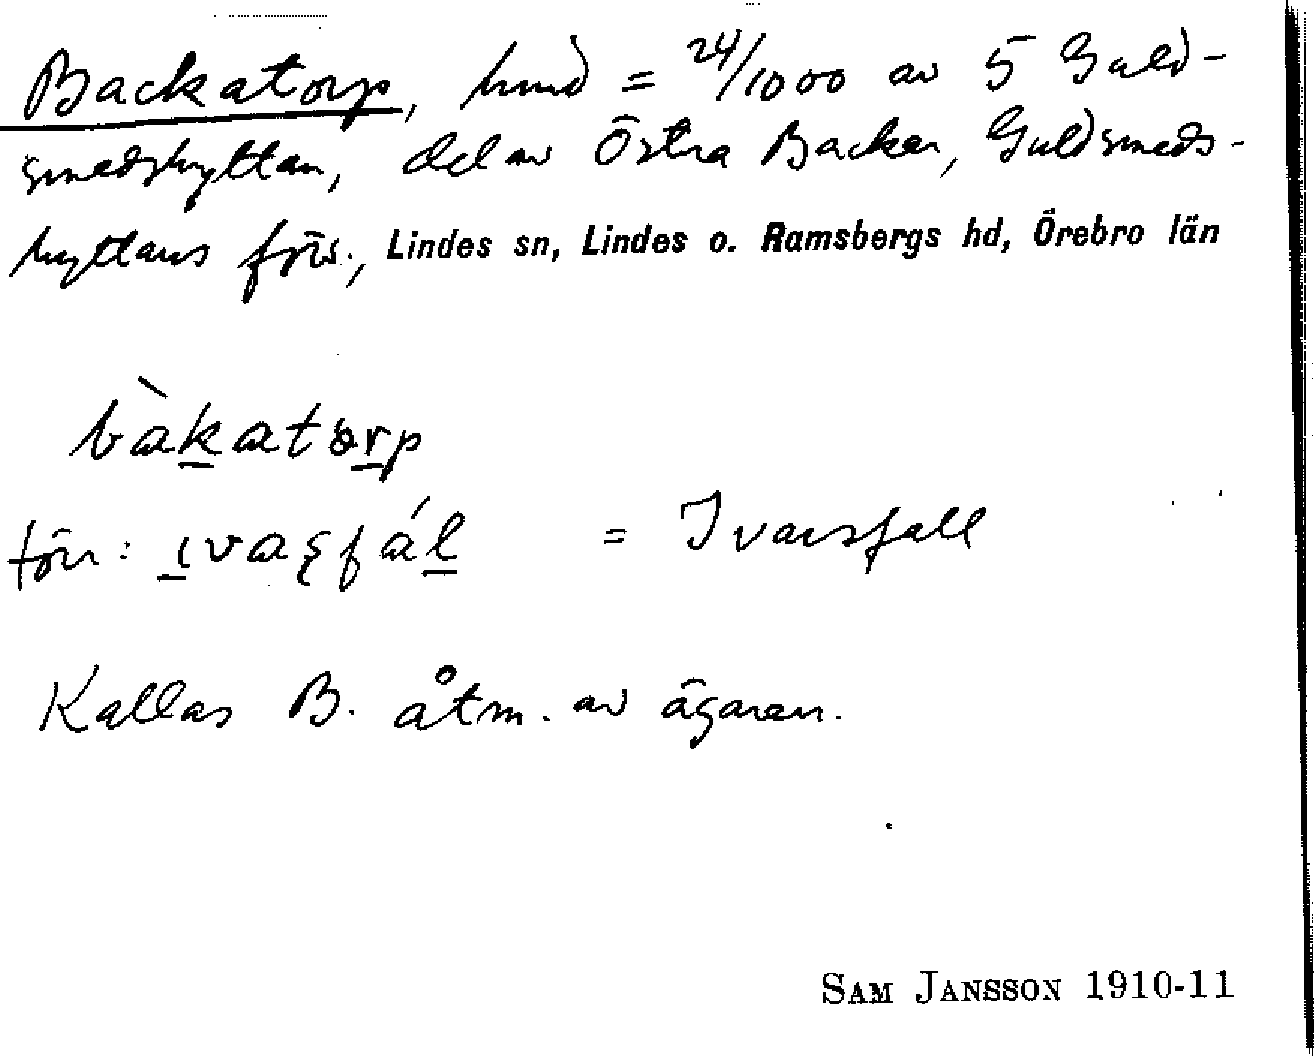 Backatorp, hmd = 24/1000 av 5 Guld-
smedshyttan, del av Östra Backen, Guldsmeds-
hyttans förs., Lindes sn, Lindes o. Ramsbergs hd, Örebro län
bàkatorp
förr: ɩvaʂfál = Ivarsfall
Kallas B. åtm. av ägaren.
SAM JANSSON 1910-11